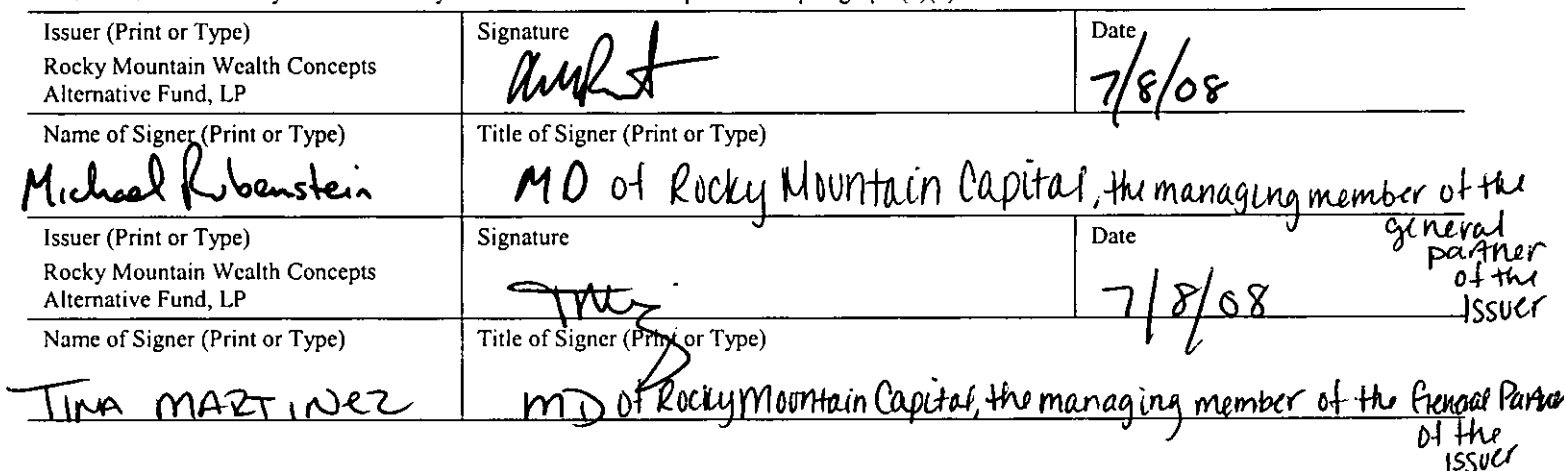 Issuer (Print or Type)
Rocky Mountain Wealth Concepts
Alternative Fund, LP
Signature
Date
7/8/08
Name of Signer (Print or Type)
Michael Rubenstein
Title of Signer (Print or Type)
MD of Rocky Mountain Capital, the managing member of the
general
partner
of the
Issuer
Issuer (Print or Type)
Rocky Mountain Wealth Concepts
Alternative Fund, LP
Signature
Date
7/8/08
Name of Signer (Print or Type)
TINA MARTINEZ
Title of Signer (Print or Type)
MD of Rocky Mountain Capital, the managing member of the General Partner
of the
issuer